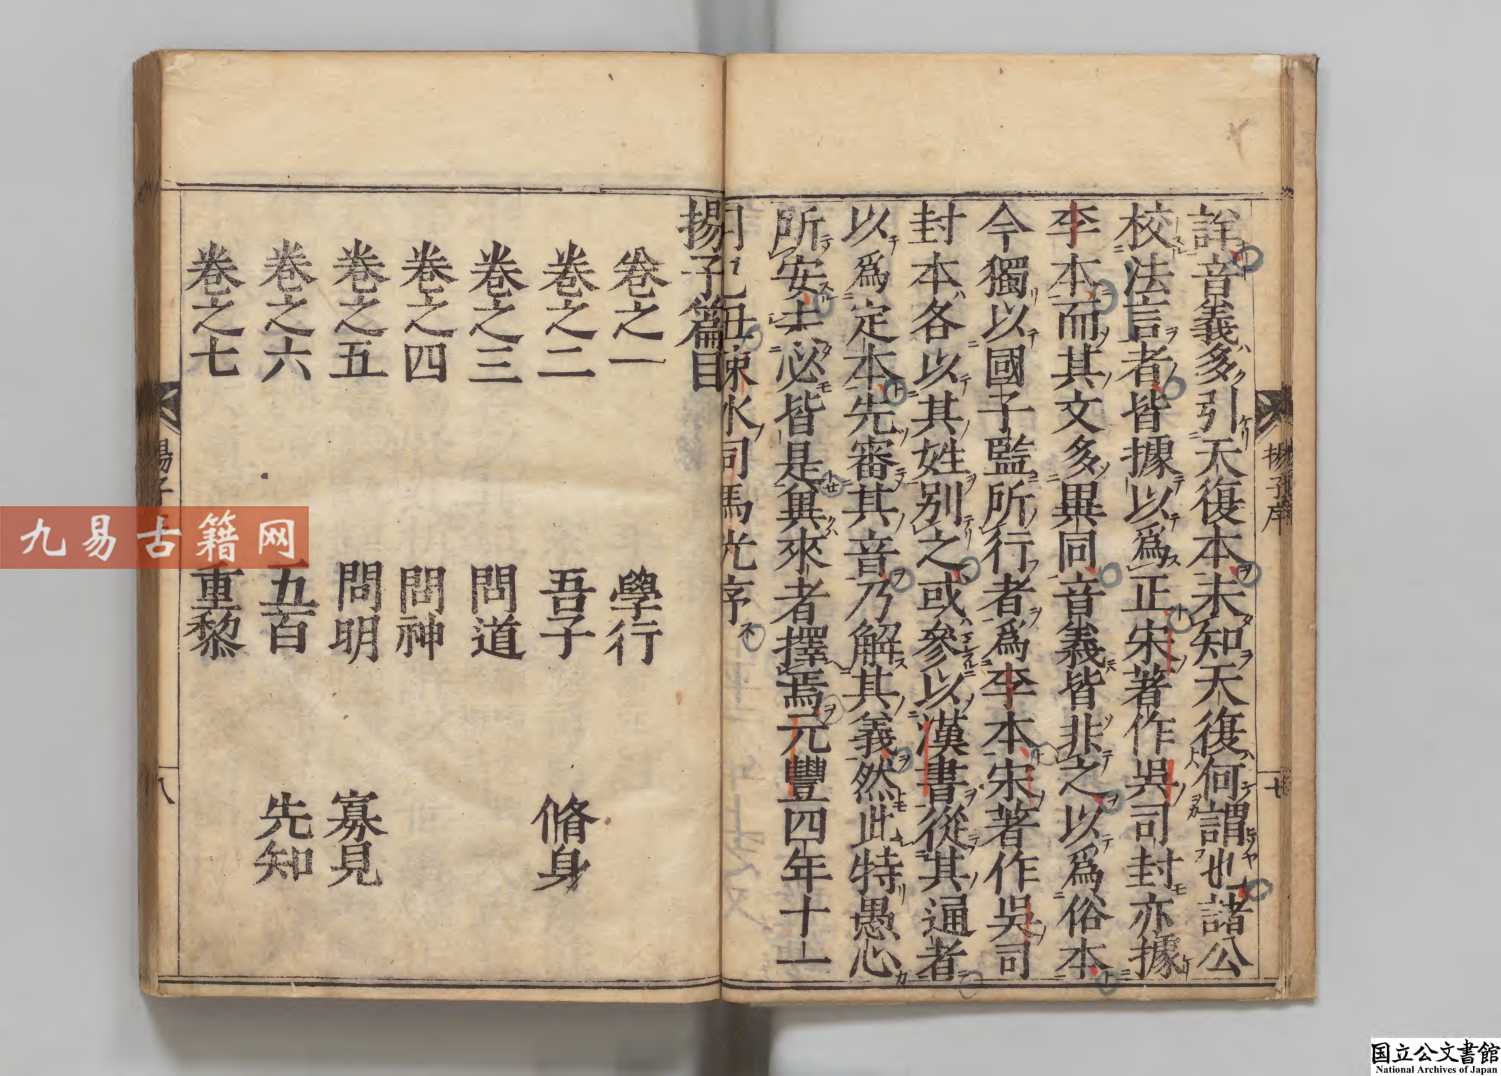 詳音義多引天復本未知天復何謂也諸公
校法言者皆據以爲正宋著作吳司封亦據
李本而其文多異同音義皆非之以爲俗本
今獨以國子監所行者爲李本宋著作吳司
封本各以其姓別之或參以漢書從其通者
以爲定本先審其音乃解其義然此特愚心
所安未必皆是與來者擇焉元豐四年十一
月己丑涑水司馬光序
揚子序
揚子篇目
卷之一 學行
卷之二 吾子 脩身
卷之三 問道
卷之四 問神
卷之五 問明 寡見
卷之六 五百 先知
卷之七 重黎
八
九易古籍网
国立公文書館
National Archives of Japan